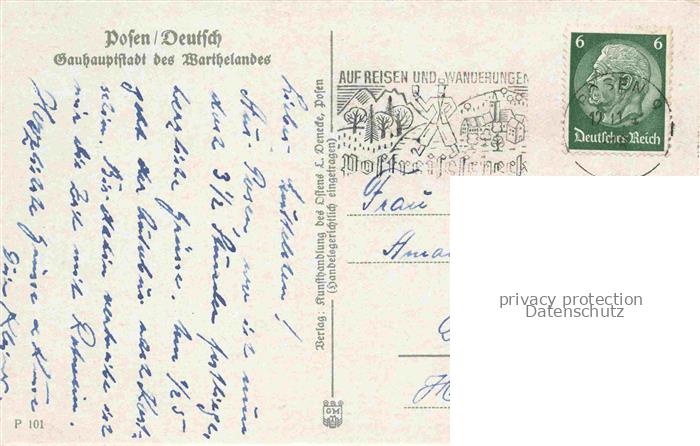 Posen/Deutsch
Gauhauptstadt des Warthelandes
Aus Posen wo ich nun
kurz 3 1/2 Stunden festliege,
herzliche Grüsse. Um 1/2 5
geht der Autobus nach
sein. Bis dahin vertreibe ich
mir die Zeit mit Rotwein.
Herzliche Grüsse u. Küsse
P 101
Verlag: Kunsthandlung des Ostens L. Denecke, Posen
(Handelsgerichtlich eingetragen)
AUF REISEN UND WANDERUNGEN
Postreisescheck
POSEN
6 6
Deutsches Reich
Frau
privacy protection
Datenschutz